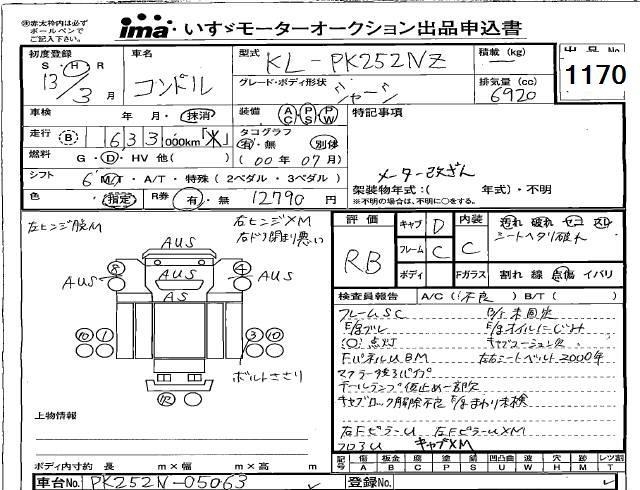 ※赤太枠内は必ず
ボールペンで
ご記入下さい。
ima いすゞモーターオークション出品申込書
初度登録
S・H・R
13/3月
車名
コンドル
型式
KL-PK252NZ
積載 (kg)
グレード・ボディ形状
シャーシ
排気量(cc)
6920
出品No
1170
車検 年 月・抹消
装備 AC PS PW
特記事項
走行 B 1633 000km「米」
タコグラフ
有・無 別体
(00年07月)
燃料 G・D・HV 他( )
シフト 6 M/T・A/T・特殊(2ペダル・3ペダル)
メーター改ざん
架装物年式:( 年式)・不明
※不明の場合は、不明に○をする。
色 ・指定 R券 有・無 12790円
左ヒンジ股M
右ヒンジXM
右ドア閉まり悪い
AUS
AUS
AUS
AUS
AS
8
4
10 1
3 10
12
ボルトささり
評価
RB
キャブ D
フレーム C
ボディ
内装
C
Fガラス
汚れ 破れ コゲ スレ
シートヘタリ破れ
割れ 線 点傷 イバリ
検査員報告 A/C(不良) B/T( )
フレームSC
B/T未固定
E/gブレ
E/gオイルにじみ
(○)点灯
キャブコーション欠
FパネルUBM
左右シートベルト2000年
マフラー後ろパイプ
テールランプ仮止め一部欠
キャブロック解除不良 E/gまわり未検
右FピラーU 左FピラーUXM
フロアU キャブXM
上物情報
ボディ内寸約 長 m×幅 m×高 m
記号 傷A 板金B 腐C 塗P 錆S 凹凸曲U 波W 穴H 跡M レツ割T
車台No. PK252N-05063
登録No.